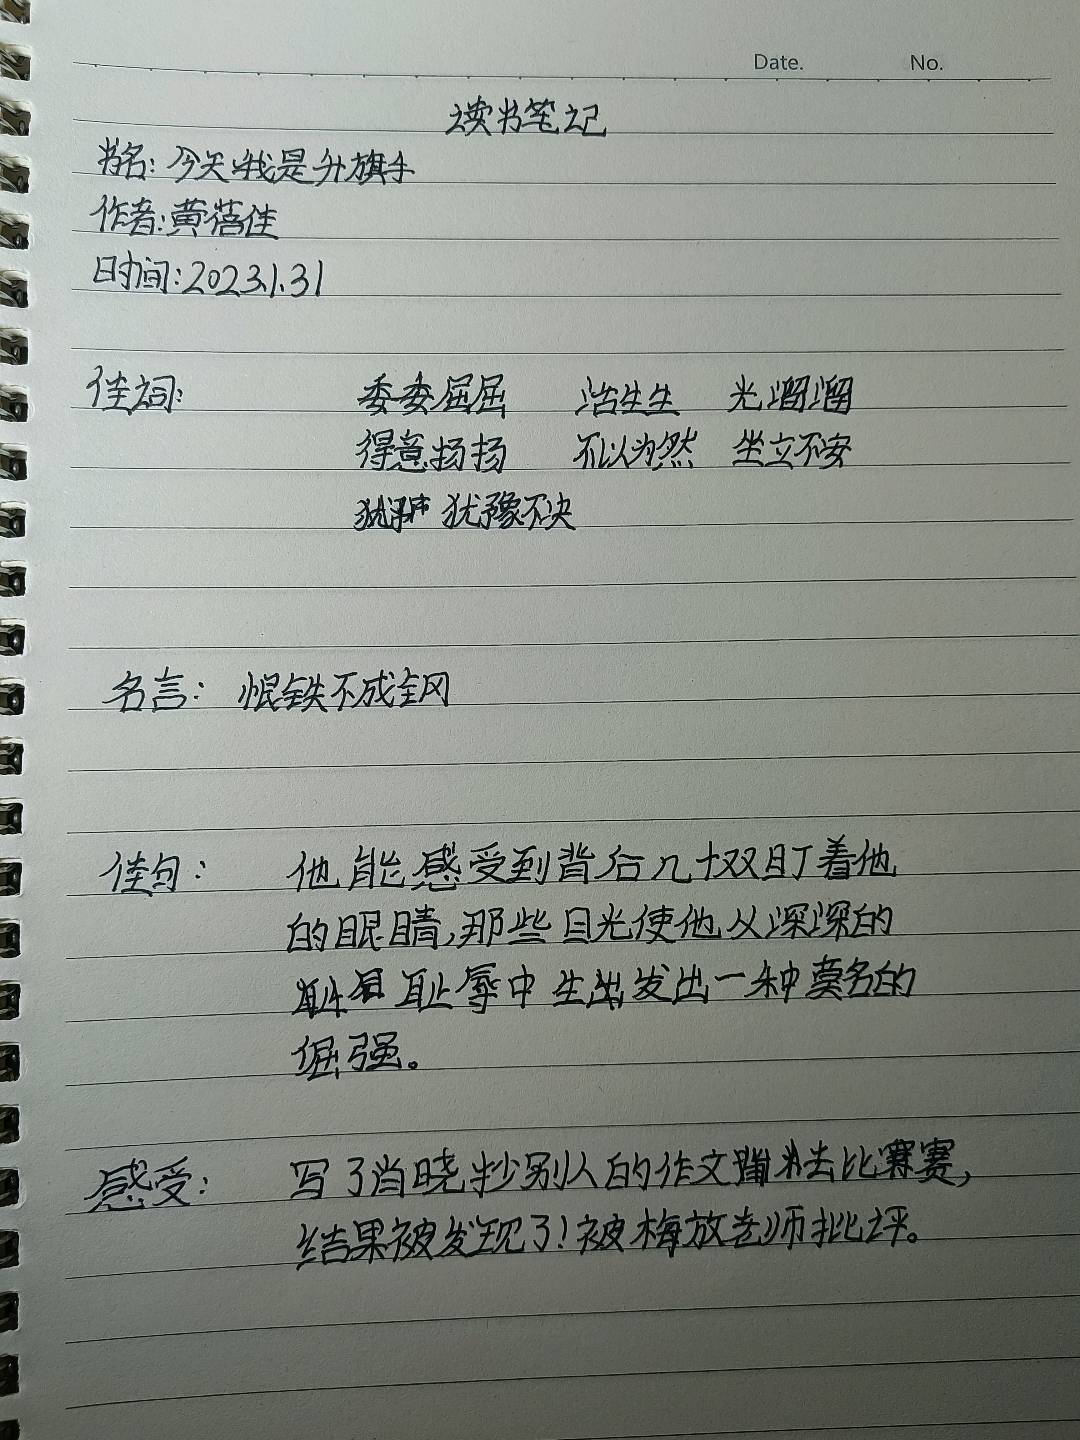 Date. No.
读书笔记
书名:今天我是升旗手
作者:黄蓓佳
时间:2023.1.31
佳词: 委委屈屈 活生生 光溜溜
得意扬扬 不以为然 坐立不安
犹豫不决
名言: 恨铁不成钢
佳句: 他能感受到背后几十双盯着他
的眼睛,那些目光使他从深深的
耻辱中生出发出一种莫名的
倔强。
感受: 写了肖晓抄别人的作文去比赛,
结果被发现了!被梅放老师批评。